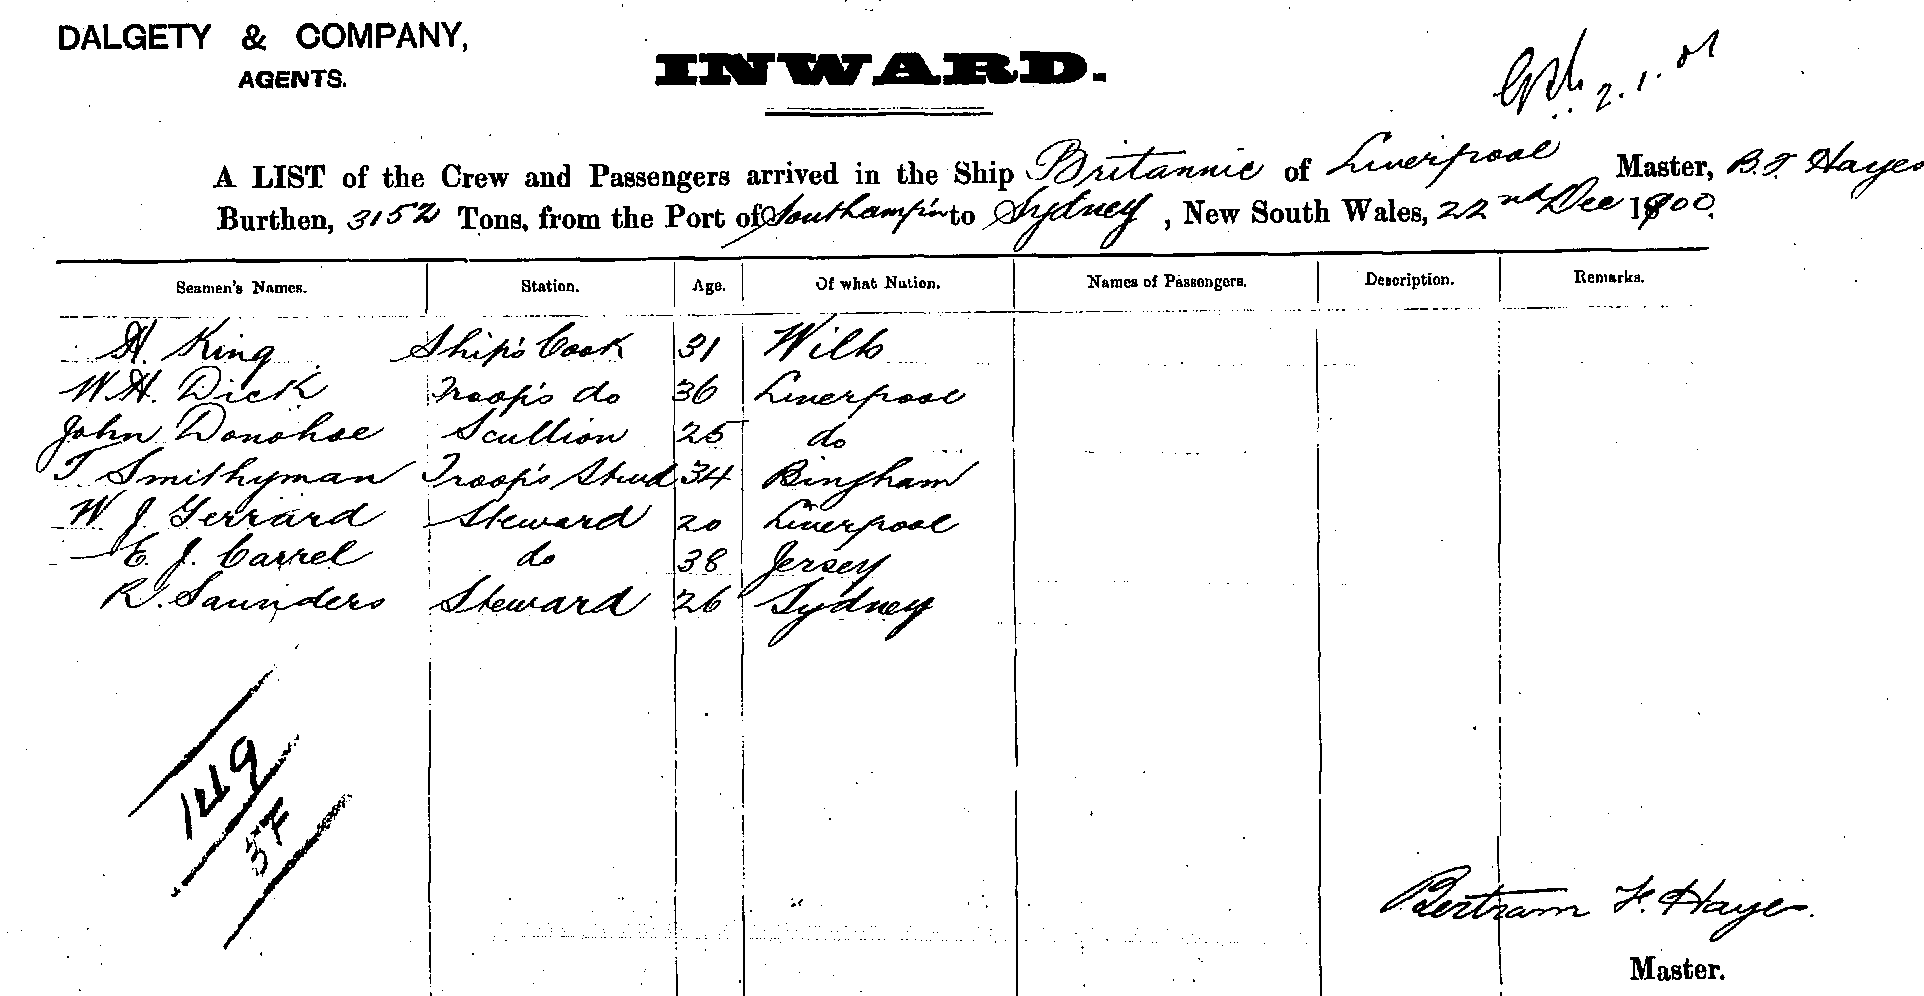 DALGETY & COMPANY,
AGENTS.
INWARD.
2.1.01
A LIST of the Crew and Passengers arrived in the Ship Britannic of Liverpool Master, B.F. Hayes
Burthen, 3152 Tons, from the Port of Southamp'n to Sydney, New South Wales, 22nd Dec 1900.
Seamen's Names. Station. Age. Of what Nation. Names of Passengers. Description. Remarks.
H. King Ship's Cook 31 Wilts
W.H. Dick Troop's do 36 Liverpool
John Donohoe Scullion 25 do
T. Smithyman Troop's Stwd 34 Bingham
W J Gerrard Steward 20 Liverpool
E. J. Carrel do 38 Jersey
R. Saunders Steward 26 Sydney
Bertram F. Hayes.
Master.